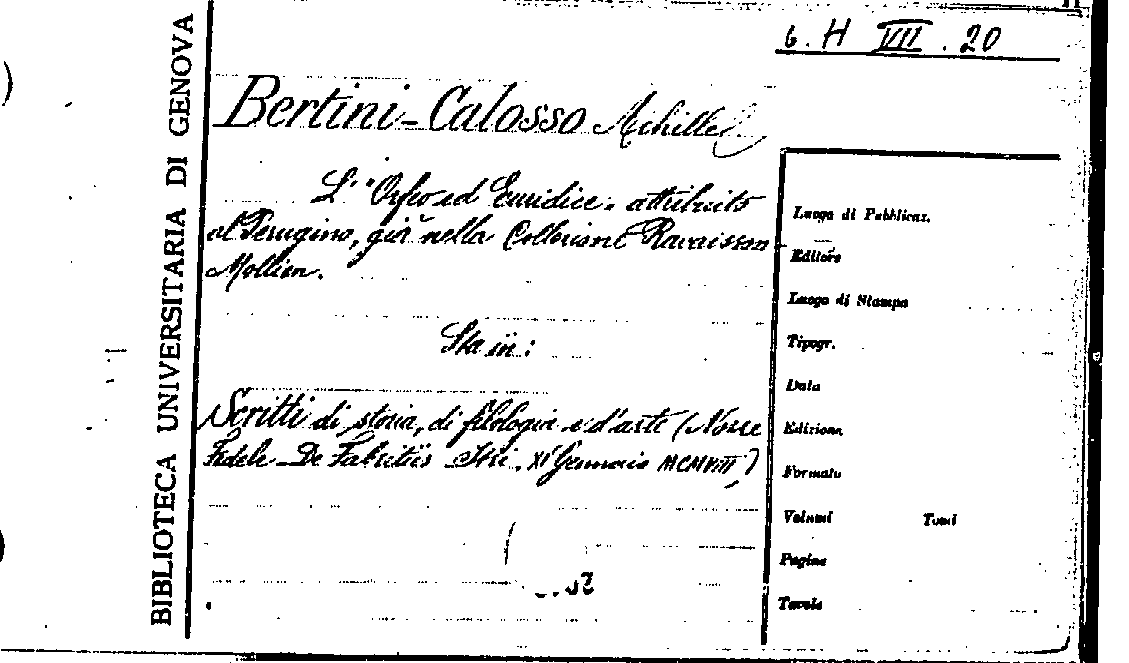 BIBLIOTECA UNIVERSITARIA DI GENOVA
6. H VII . 20
Bertini-Calosso Achille
L' "Orfeo ed Euridice" attribuito
al Perugino, già nella Collezione Ravaisson
Mollien.
Sta in:
Scritti di storia, di filologia e d'arte (Nozze
Fedele De Fabritiis XI Gennaio MCMVIII)
Luogo di Pubblicaz.
Editore
Luogo di Stampa
Tipogr.
Data
Edizione
Formato
Volumi Tomi
Pagine
Tavole